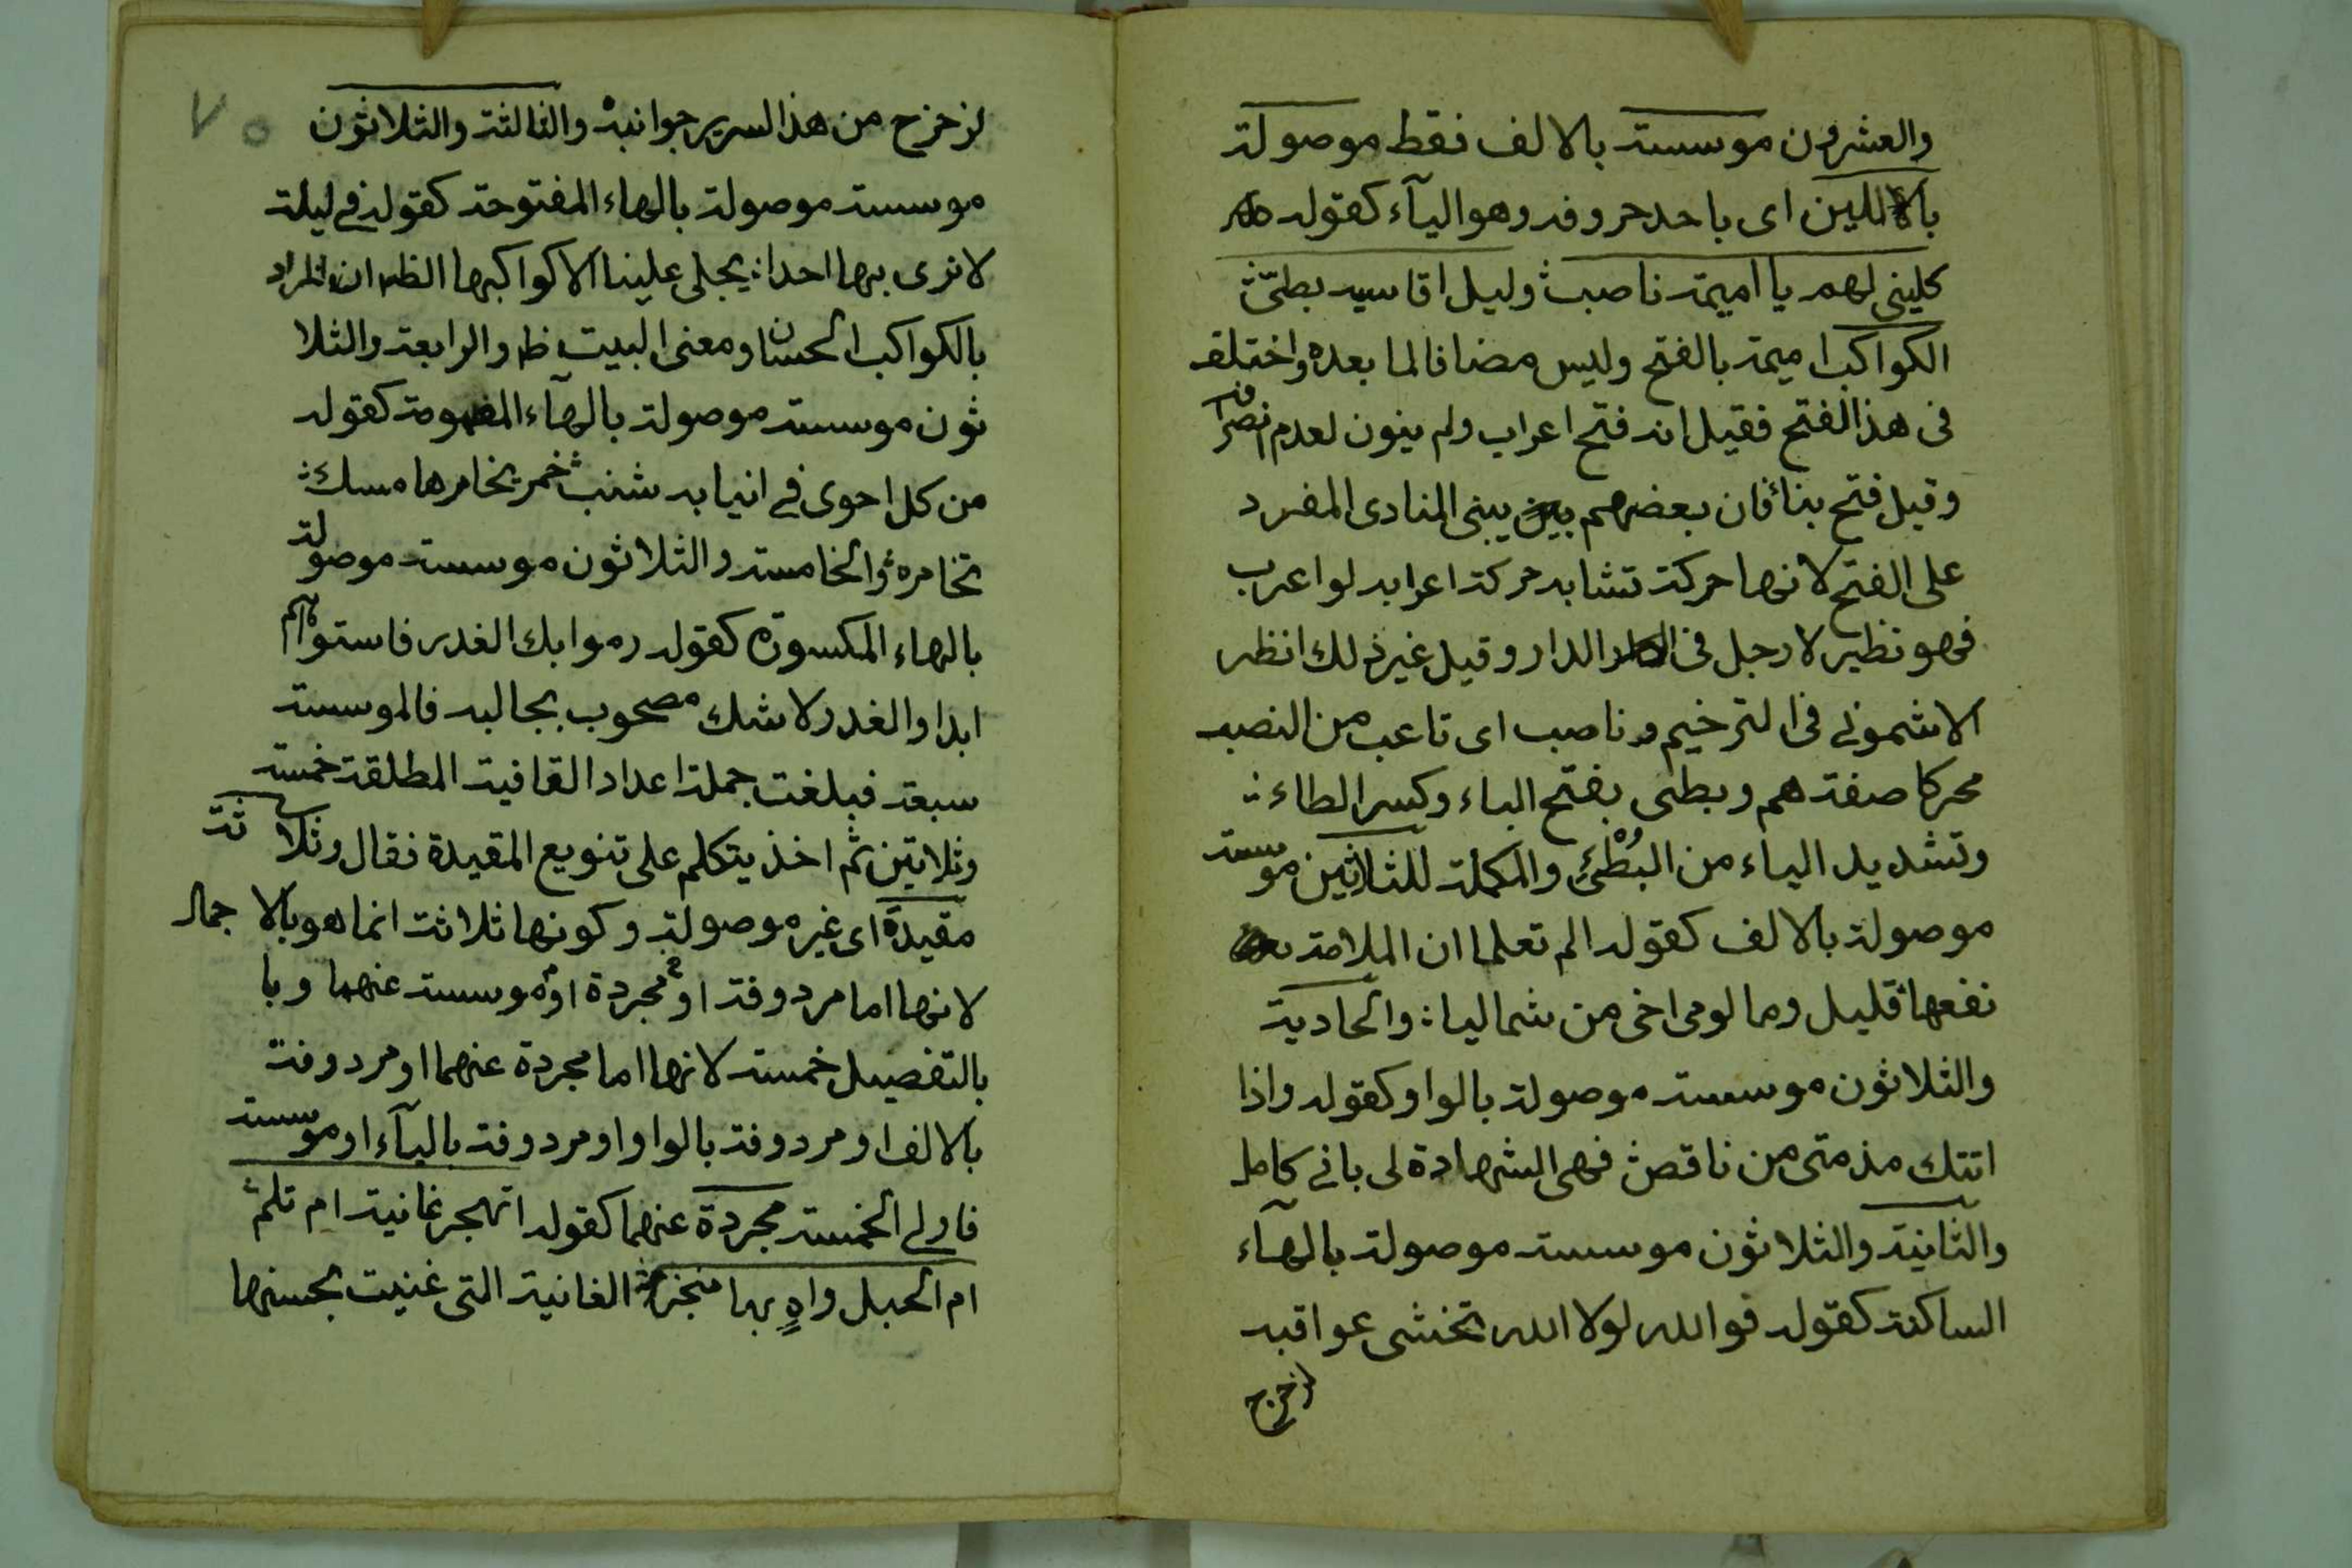 والعشرون موسسة بالالف فقط موصولة
باللين اى باحد حروفه وهو اليآء كقوله
كلينى لهم يا اميمة ناصب وليل اقاسيه بطئ
الكواكب اميمة بالفتح وليس مضافا لما بعده واختلف
فى هذا الفتح فقيل انه فتح اعراب ولم ينون لعدم انصراف
وقيل فتح بنأ فان بعضهم يبنى المنادى المفرد
على الفتح لانها حركة تشابه حركة اعرابه لو اعرب
فهو نظير لا رجل فى الدار وقيل غير ذلك انظر
الاشمونى فى الترخيم وناصب اى تاعب من النصب
محركا صفة هم وبطى بفتح الباء وكسر الطاء
وتشديد الياء من البُطْئِ والمكملة للثلاثين موسسة
موصولة بالالف كقوله الم تعلما ان الملامة
نفعها قليل وما لومى اخى من شماليا والحادية
والثلاثون موسسة موصولة بالواو كقوله واذا
اتتك مذمتى من ناقص فهى الشهادة لى بانى كامل
والثانية والثلاثون موسسة موصولة بالهآء
الساكنة كقوله فوالله لولا الله تخشى عواقبه
لزخزح
لزخزح من هذا السرير جوانبه والثالثة والثلاثون
موسسة موصولة بالهاء المفتوحة كقوله فى ليلة
لا نرى بها احدا يجلى علينا الا كواكبها الظ ان المراد
بالكواكب الحسان ومعنى البيت ظ والرابعة والثلا
ثون موسسة موصولة بالهآء المضمومة كقوله
من كل احوى فى انيابه شنب خمر يخامرها مسك
تخامره والخامسة والثلاثون موسسة موصولة
بالهاء المكسورة كقوله رموا بك الغدر فاستو
ابدا والغدر لا شك مصحوب بجالبه فالموسسة
سبعة فبلغت جملة اعداد القافية المطلقة خمسة
وثلاثين ثم اخذ يتكلم على تنويع المقيدة فقال وثلاثة
مقيدة اى غير موصولة وكونها ثلاثة انما هو بالاجمال
لانها اما مردوفة او مجردة او موسسة عنهما وبا
بالتفصيل خمسة لانها اما مجردة عنهما او مردوفة
بالالف او مردوفة بالواو او مردوفة باليآء او موسسة
فاولى الخمسة مجردة عنهما كقوله اتهجر غانية ام تلم
ام الحبل واهٍ بها منجزم الغانية التى غنيت بحسنها
٧٥